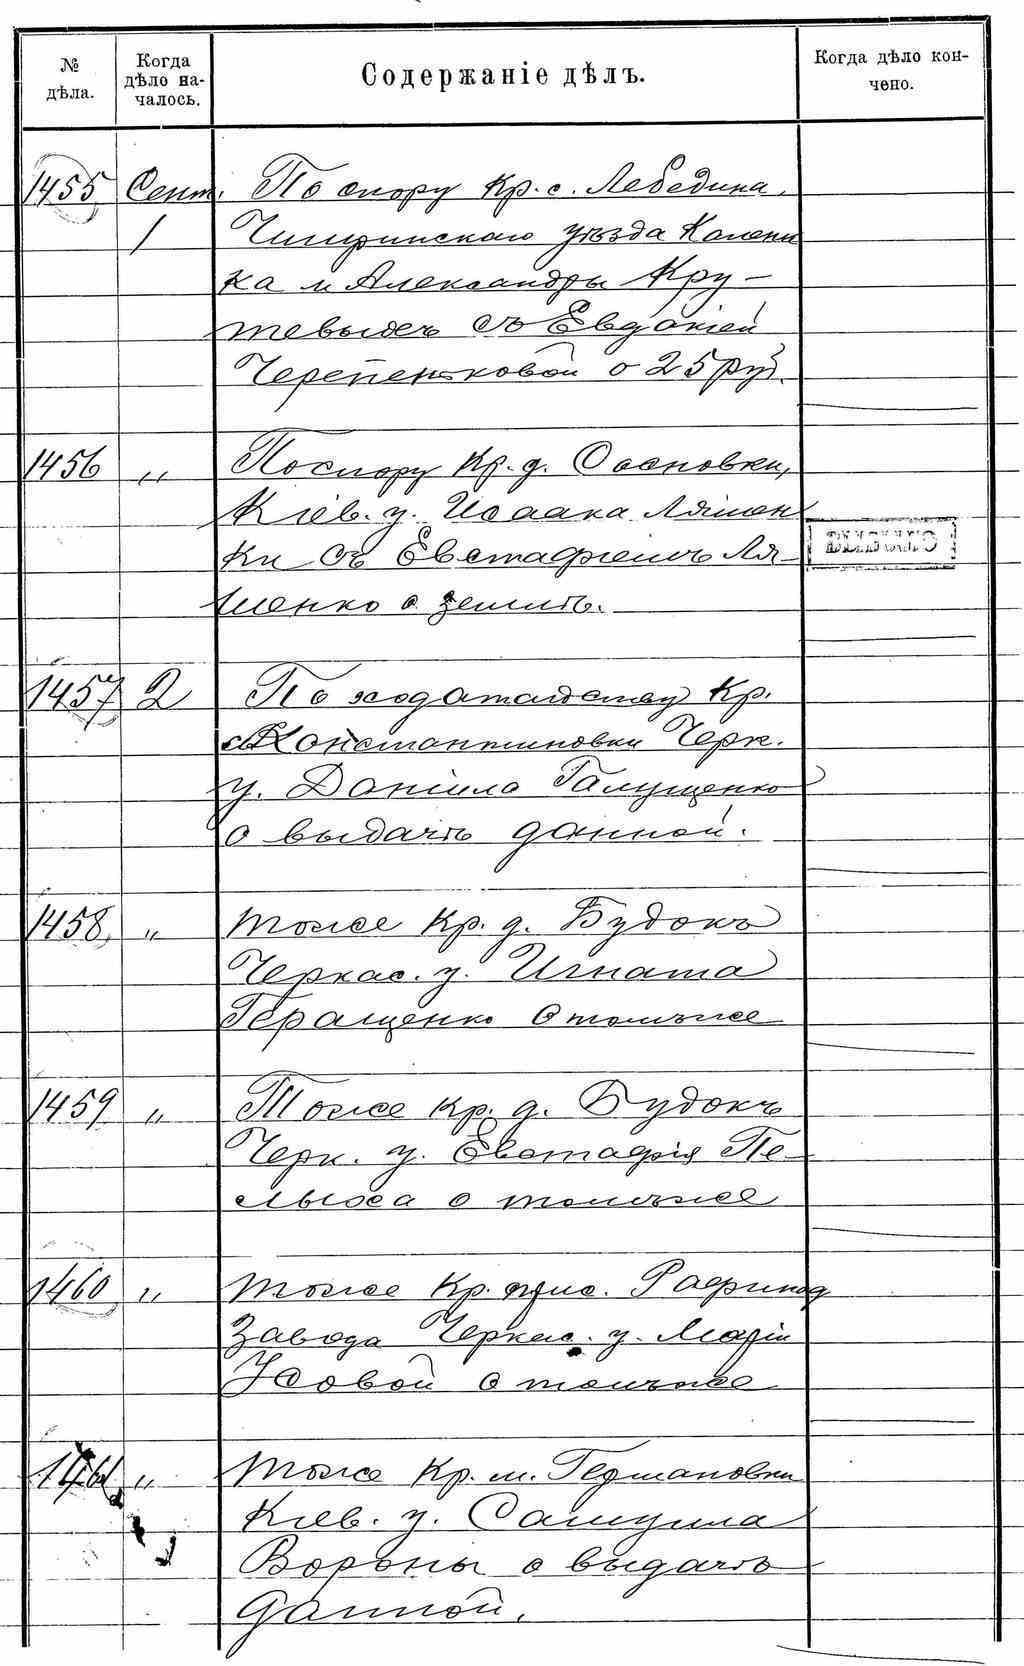 № дѣла.
Когда дѣло на-
чалось.
Содержаніе дѣлъ.
Когда дѣло кон-
чено.
1455 Сент. По спору Кр. с. Лебедина,
1 Чигиринскаго уѣзда Калени
ка и Александры Кру-
тевыхъ съ Евдокіей
Черепенковой о 25 руб.
1456 " По спору Кр. д. Сосновки,
Кіев. у. Исаака Ляшен
ки съ Евстафіемъ Ля-
шенко о землѣ.
ВЫБЫЛО
1457 2 По ходатайству Кр.
с. Константиновки Черк.
у. Даніила Галущенко
о выдачѣ данной.
1458 " тоже Кр. д. Будокъ
Черкас. у. Игната
Геращенко о томъ же
1459 " Тоже Кр. д. Будокъ
Черк. у. Евстафія Пе-
лыха о томъ же
1460 " тоже Кр. Рафинад
завода Черкас. у. Маріи
Усовой о томъ же
1461 " тоже Кр. м. Германовки
Кіев. у. Самуила
Вороны о выдачѣ
данной.